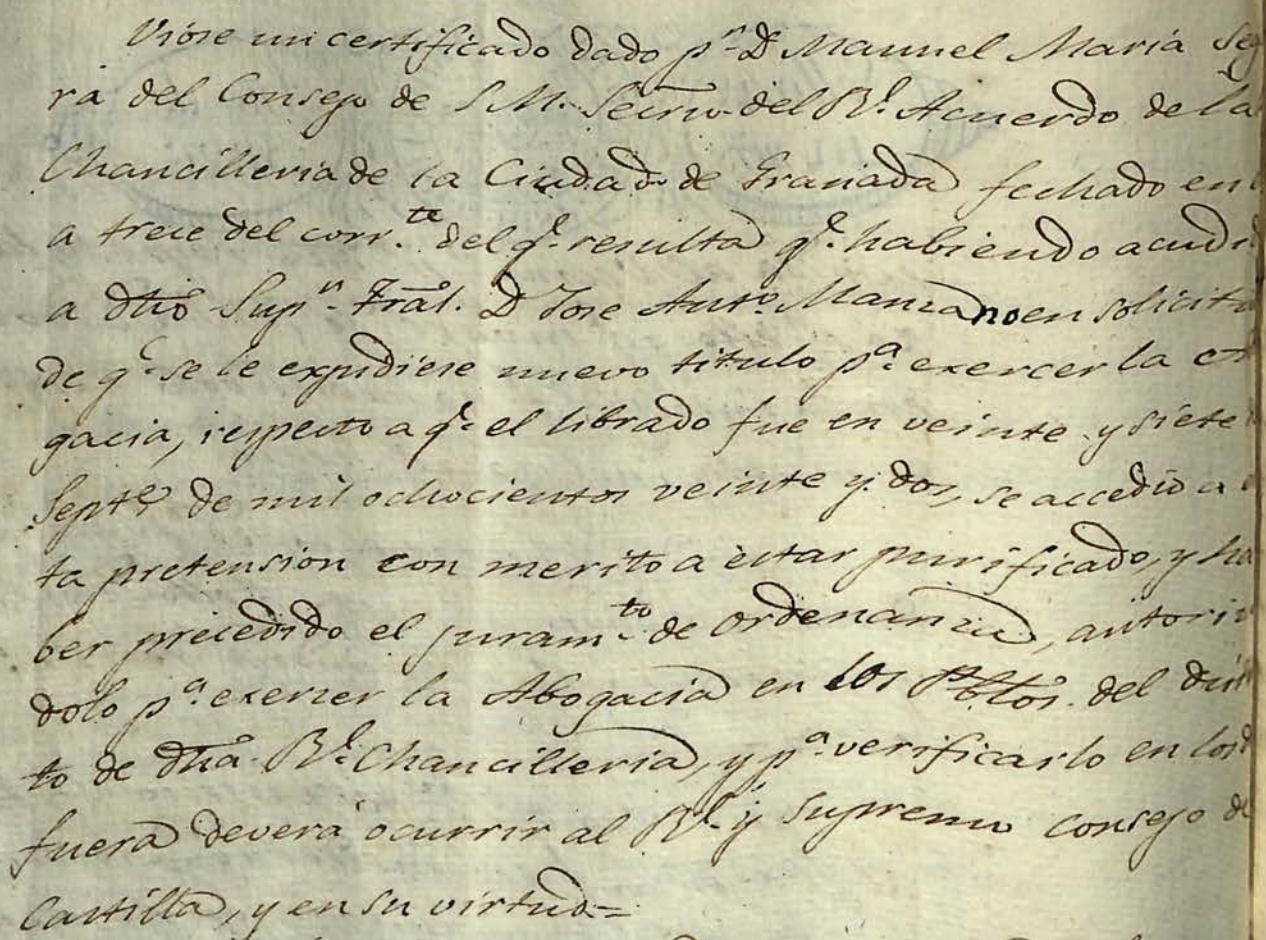 Vióse un certificado dado pr. Dn Manuel Maria Seg
ra del Consejo de S.M. Secrio. del Rl. Acuerdo de la
Chancilleria de la Ciudad de Granada fechado en
a trece del corrte. del q.e resulta q.e habiendo acudi
a dho Supr. Tral. Dn Jose Anto. Manzano en solicitu
de q.e se le expidiese nuevo titulo pa. exercer la
gacia, respecto a q.e el librado fue en veinte y siete
Septe. de mil ochocientos veinte y dos, se accedió a
ta pretension con merito a estar purificado, y ha
ber precedido el juramto. de ordenanza, autoriz
dolo pa. exercer la Abogacia en los Pblos. del dist
to de dha Rl. Chancilleria, y pa. verificarlo en los
fuera deverá ocurrir al Rl. y Supremo Consejo de
Castilla, y en su virtud=